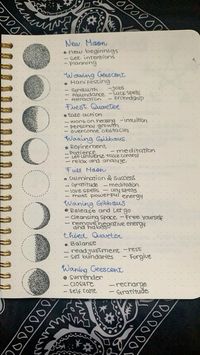 New Moon
new beginnings
- set intentions
- planning
Waxing Crescent
Manifesting
- growth - jobs
- Abundance - luck spells
- Attraction - friendship
First Quarter
take action
- work on healing - intuition
- personal growth
- overcome obstacles
Waxing Gibbous
Refinement
- Patience - meditation
- relax and analyze
Full Moon
culmination & success
- gratitude - meditation
- love spells - any spells
- most powerful energy
Waning Gibbous
Release and Let go
- cleansing space - free yourself
- remove negative energy
and habits
Third Quarter
Balance
- readjustment - rest
- set boundaries - forgive
Waning Crescent
Surrender
- closure - recharge
- self care - gratitude